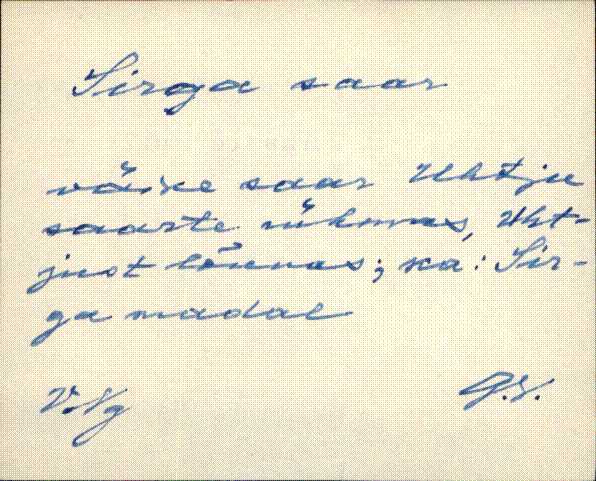 Sirga saar
väike saar Uhtju
saarte rühmas, Uht-
just lõunas; ka: Sir-
ga madal
V.Ng